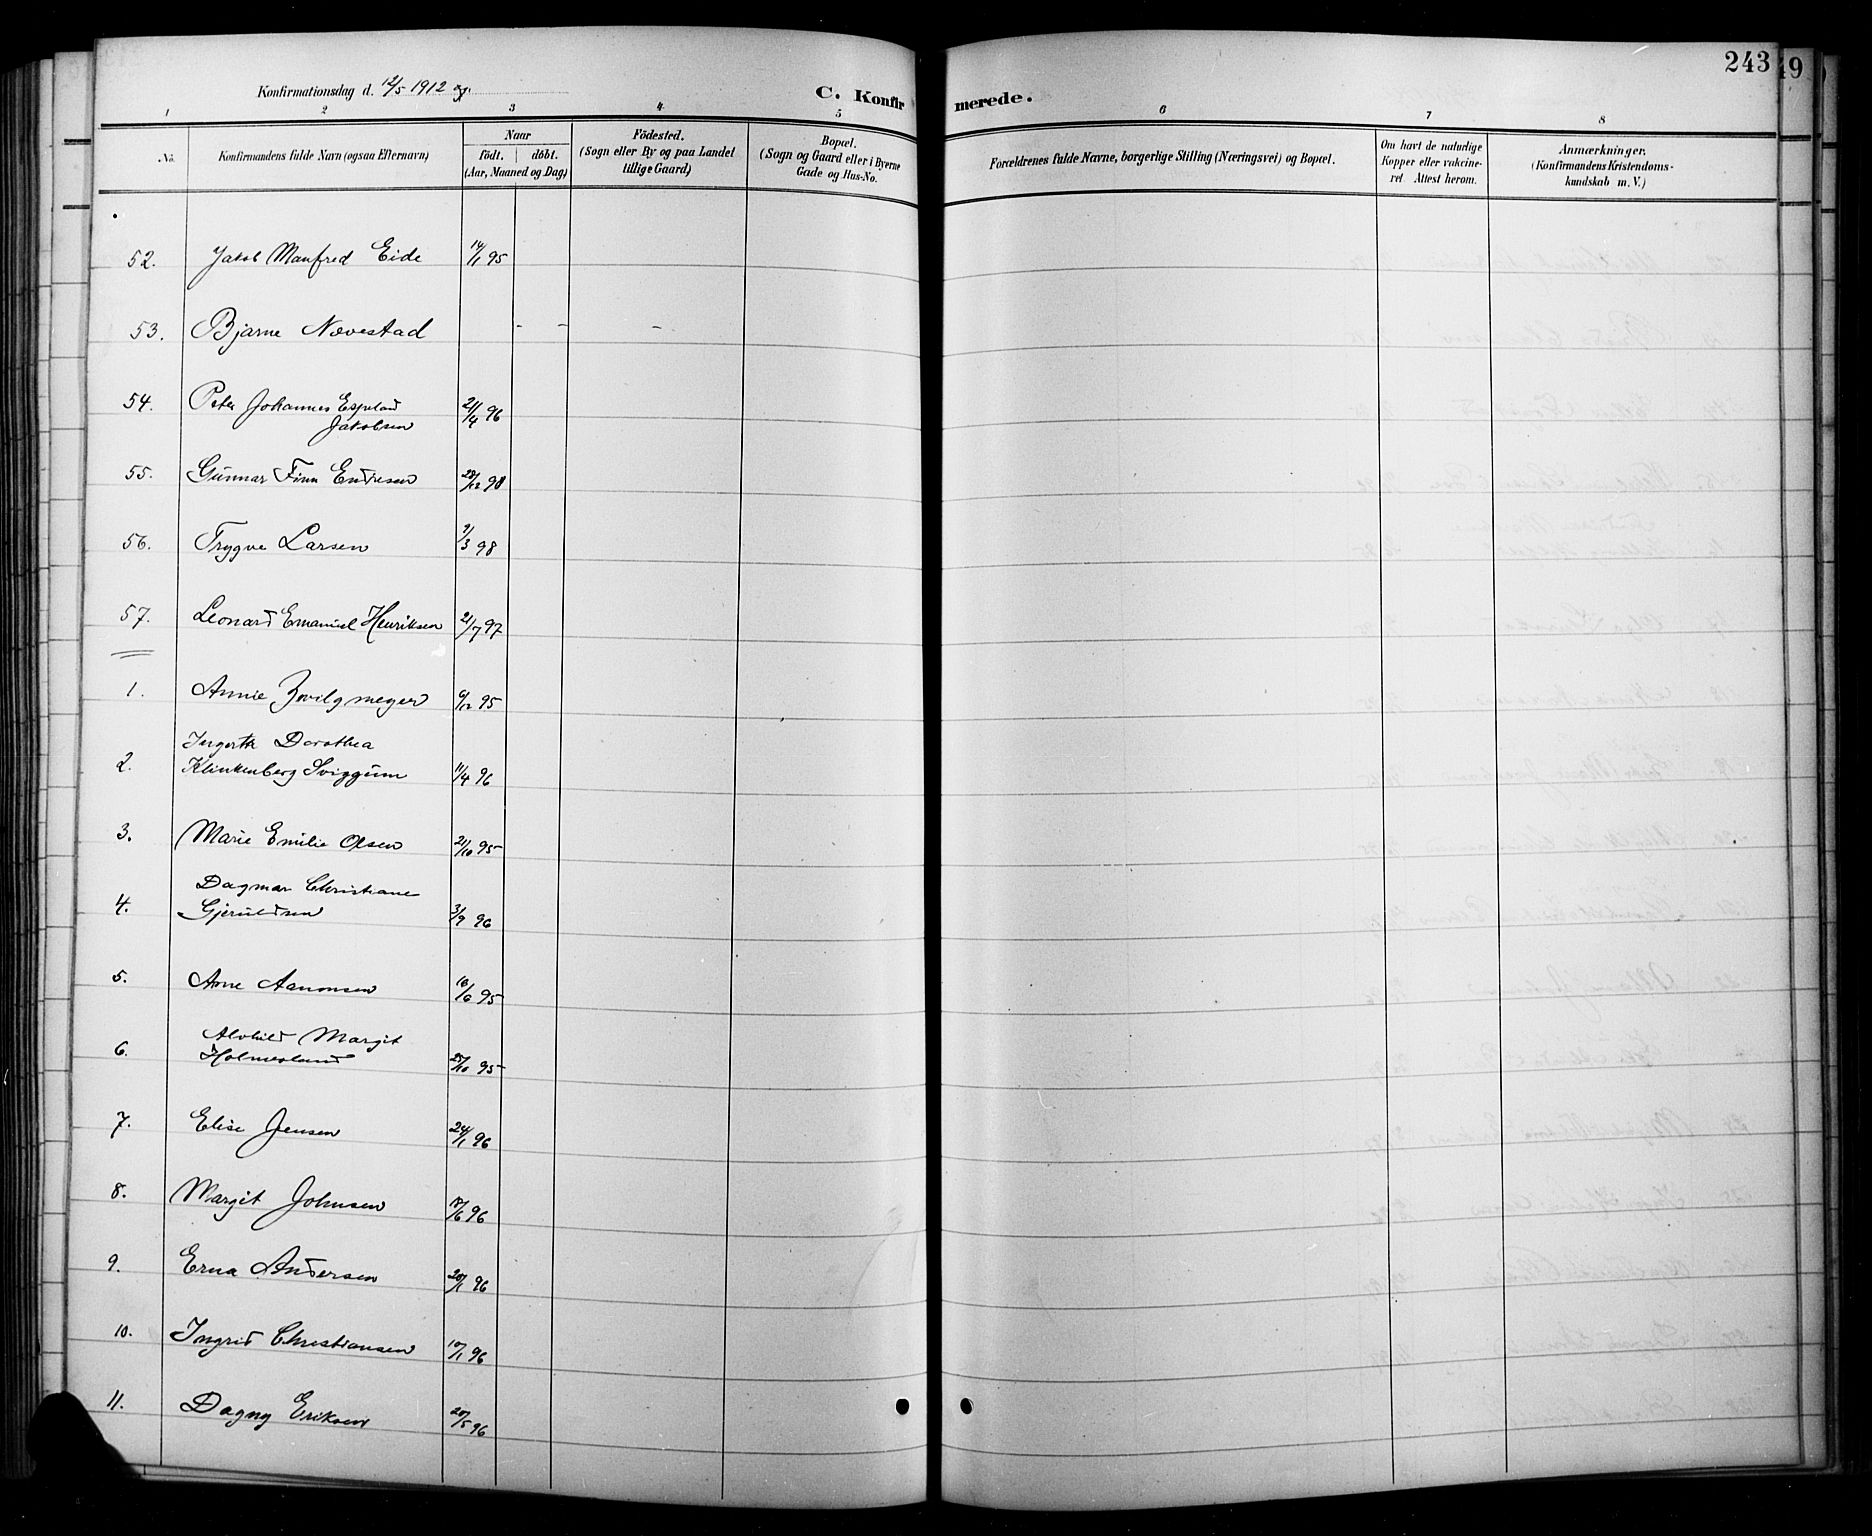 243
49
Konfirmationsdag d. 12/5 1912 og
C. Konfirmerede.
1 2 3 4 5 6 7 8
No.
Konfirmandens fulde Navn (ogsaa Efternavn)
Naar
födt. döbt.
(Aar, Maaned og Dag)
Födested.
(Sogn eller By og paa Landet
tillige Gaard)
Bopæl.
(Sogn og Gaard eller i Byerne
Gade og Hus-No.
Forældrenes fulde Navne, borgerlige Stilling (Næringsvei) og Bopæl.
Om havt de naturlige
Kopper eller vakcine-
ret Attest herom.
Anmærkninger,
(Konfirmandens Kristendoms-
kundskab m. V.)
52. Jakob Manfred Eide 14/1 95
53. Bjarne Nævestad - - -
54. Peter Johannes Espeland
Jakobsen 21/4 96
55. Gunnar Finn Endresen 28/12 98
56. Trygve Larsen /3 98
57. Leonard Emanuel Henriksen 21/7 97
1. Annie Zwilgmeyer 6/12 95
2. Ingerth Dorothea
Klinkenberg Sviggum 11/4 96
3. Marie Emilie Olsen 21/10 95
4. Dagmar Christiane
Gjeruldsen 3/9 96
5. Arne Aanonsen 16/6 95
6. Alvhild Margit
Holmesland /10 95
7. Elise Jensen 24/1 96
8. Margit Johnsen 18/6 96
9. Erna Andersen 20/1 96
10. Ingrid Christiansen 10/1 96
11. Dagny Eriksen 20/5 96